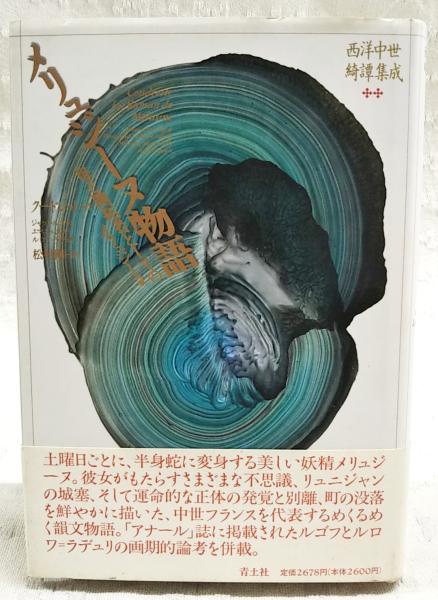 西洋中世
綺譚集成
メリュジーヌ物語
Coudrette
Le Roman de
Mélusine
クードレット
土曜日ごとに、半身蛇に変身する美しい妖精メリュジ
ーヌ。彼女がもたらすさまざまな不思議、リュニジャン
の城塞、そして運命的な正体の発覚と別離、町の没落
を鮮やかに描いた、中世フランスを代表するめくるめ
く韻文物語。「アナール」誌に掲載されたルゴフとルロ
ワ=ラデュリの画期的論考を併載。
青土社 定価2678円(本体2600円)